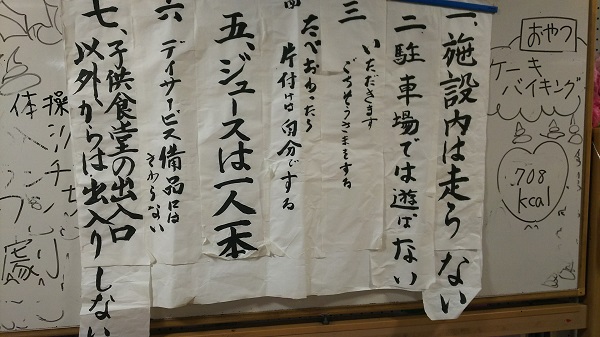 一、施設内は走らない
二 駐車場では遊ばない
三 いただきます
ごちそうさまをする
たべおわったら
片付けは自分でする
五、ジュースは一人一本
六 デイサービス備品には
さわらない
七、子供食堂の出入口
以外からは出入りしない
おやつ
ケーキ
バイキング
708
kcal
体操